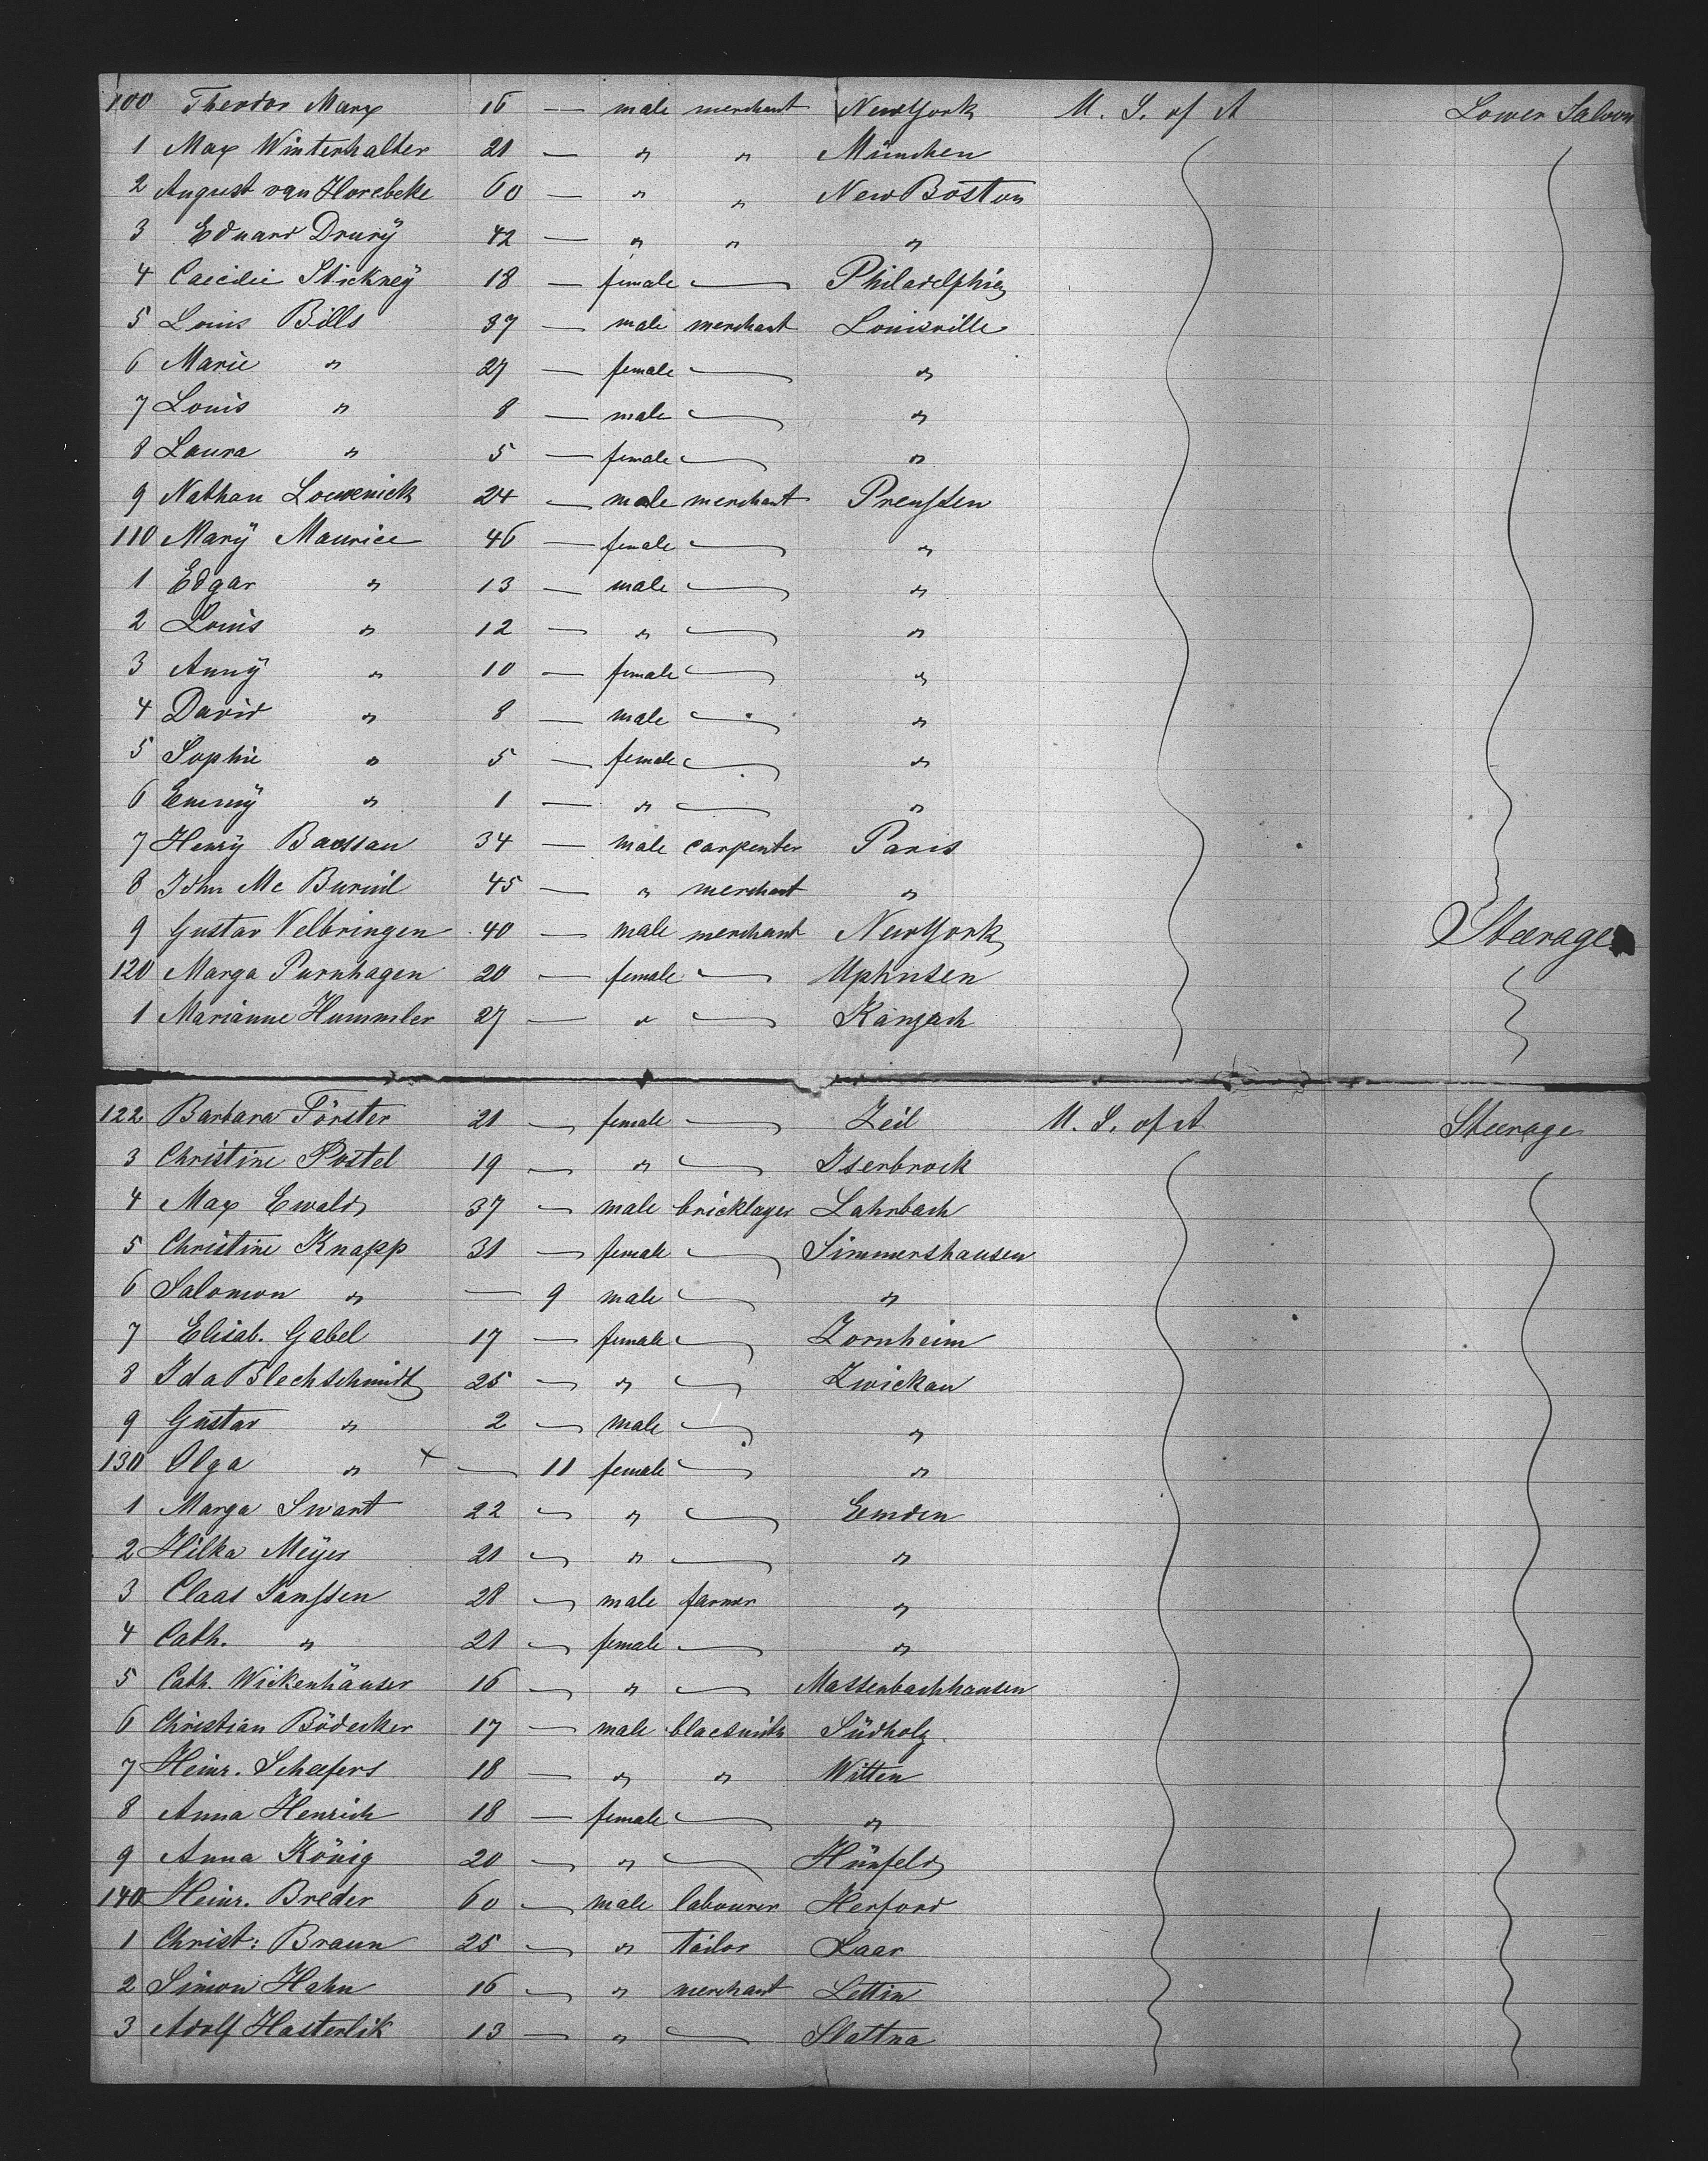 100 Theodor Marx 16 — male merchant New York U. S. of A Lower Saloon
1 Max Winterhalter 21 — " " München
2 August van Horebeke 60 — " " New Boston
3 Eduard Drurÿ 42 — " " "
4 Caecilie Stickneÿ 18 — female — Philadelphia
5 Louis Bills 37 — male merchant Louisville
6 Marie " 27 — female — "
7 Louis " 8 — male — "
8 Laura " 5 — female — "
9 Nathan Loewenick 24 — male merchant Preussen
110 Marÿ Maurice 46 — female — "
1 Edgar " 13 — male — "
2 Louis " 12 — " — "
3 Annÿ " 10 — female — "
4 David " 8 — male — "
5 Sophie " 5 — female — "
6 Emmÿ " 1 — " — "
7 Henrÿ 34 — male carpenter Paris
8 John Mc 45 — " merchant "
9 Gustav Velbringen 40 — male merchant New York Steerage
120 Marga Purnhagen 20 — female — Uphusen
1 Marianne Hummler 27 — " — Kanzach
122 Barbara Förster 21 — female — Zeil U. S. of A Steerage
3 Christine Postel 19 — " — Iserbrock
4 Max Ewald 37 — male bricklayer Lahrbach
5 Christine Knapp 31 — female — Simmershausen
6 Salomon " — 9 male — "
7 Elisab. Gabel 17 — female — Zornheim
8 Ida Blechschmidt 25 — " — Zwickau
9 Gustav " 2 — male — "
130 Olga " x — 11 female — "
1 Marga Swart 22 — " — Emden
2 Hilka Meÿer 21 — " — "
3 Claas Janssen 28 — male farmer "
4 Cath. " 21 — female — "
5 Cath. Wickenhäuser 16 — " — Massenbachhausen
6 Christian Bödecker 17 — male blacsmith Südholz
7 Heinr. Schefers 18 — " " Witten
8 Anna Henrich 18 — female — "
9 Anna König 20 — " — Hünfeld
140 Heinr. Breder 60 — male labourer Herford
1 Christ: Braun 25 — " tailor Laar
2 Simon Hahn 16 — " merchant Lettin
3 Adolf Hasterlik 13 — " — Slattna